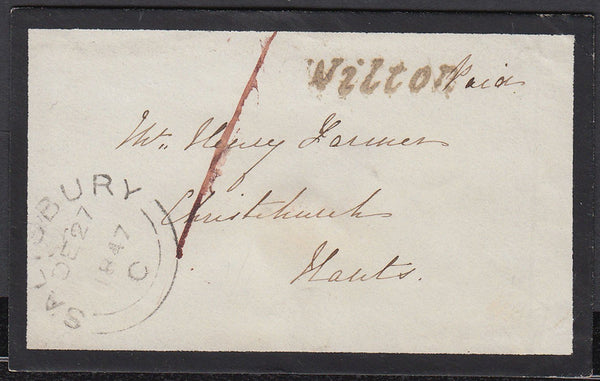 Wilton Paid
Mr. Henry Farmer
Christchurch
Hants.
SALISBURY
DE 27
1847
C